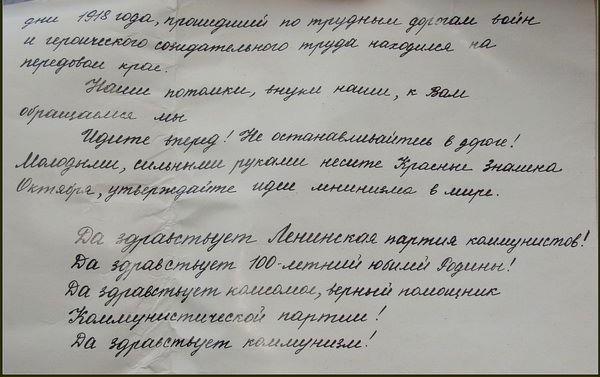 дни 1918 года, прошедший по трудным дорогам войн
и героического созидательного труда находился на
передовом крае.
Наши потомки, внуки наши, к вам
обращаемся мы
Идите вперед! Не останавливайтесь в дороге!
Молодыми, сильными руками несите Красные Знамена
Октября, утверждайте идеи ленинизма в мире.
Да здравствует Ленинская партия коммунистов!
Да здравствует 100-летний юбилей Родины!
Да здравствует комсомол, верный помощник
Коммунистической партии!
Да здравствует коммунизм!